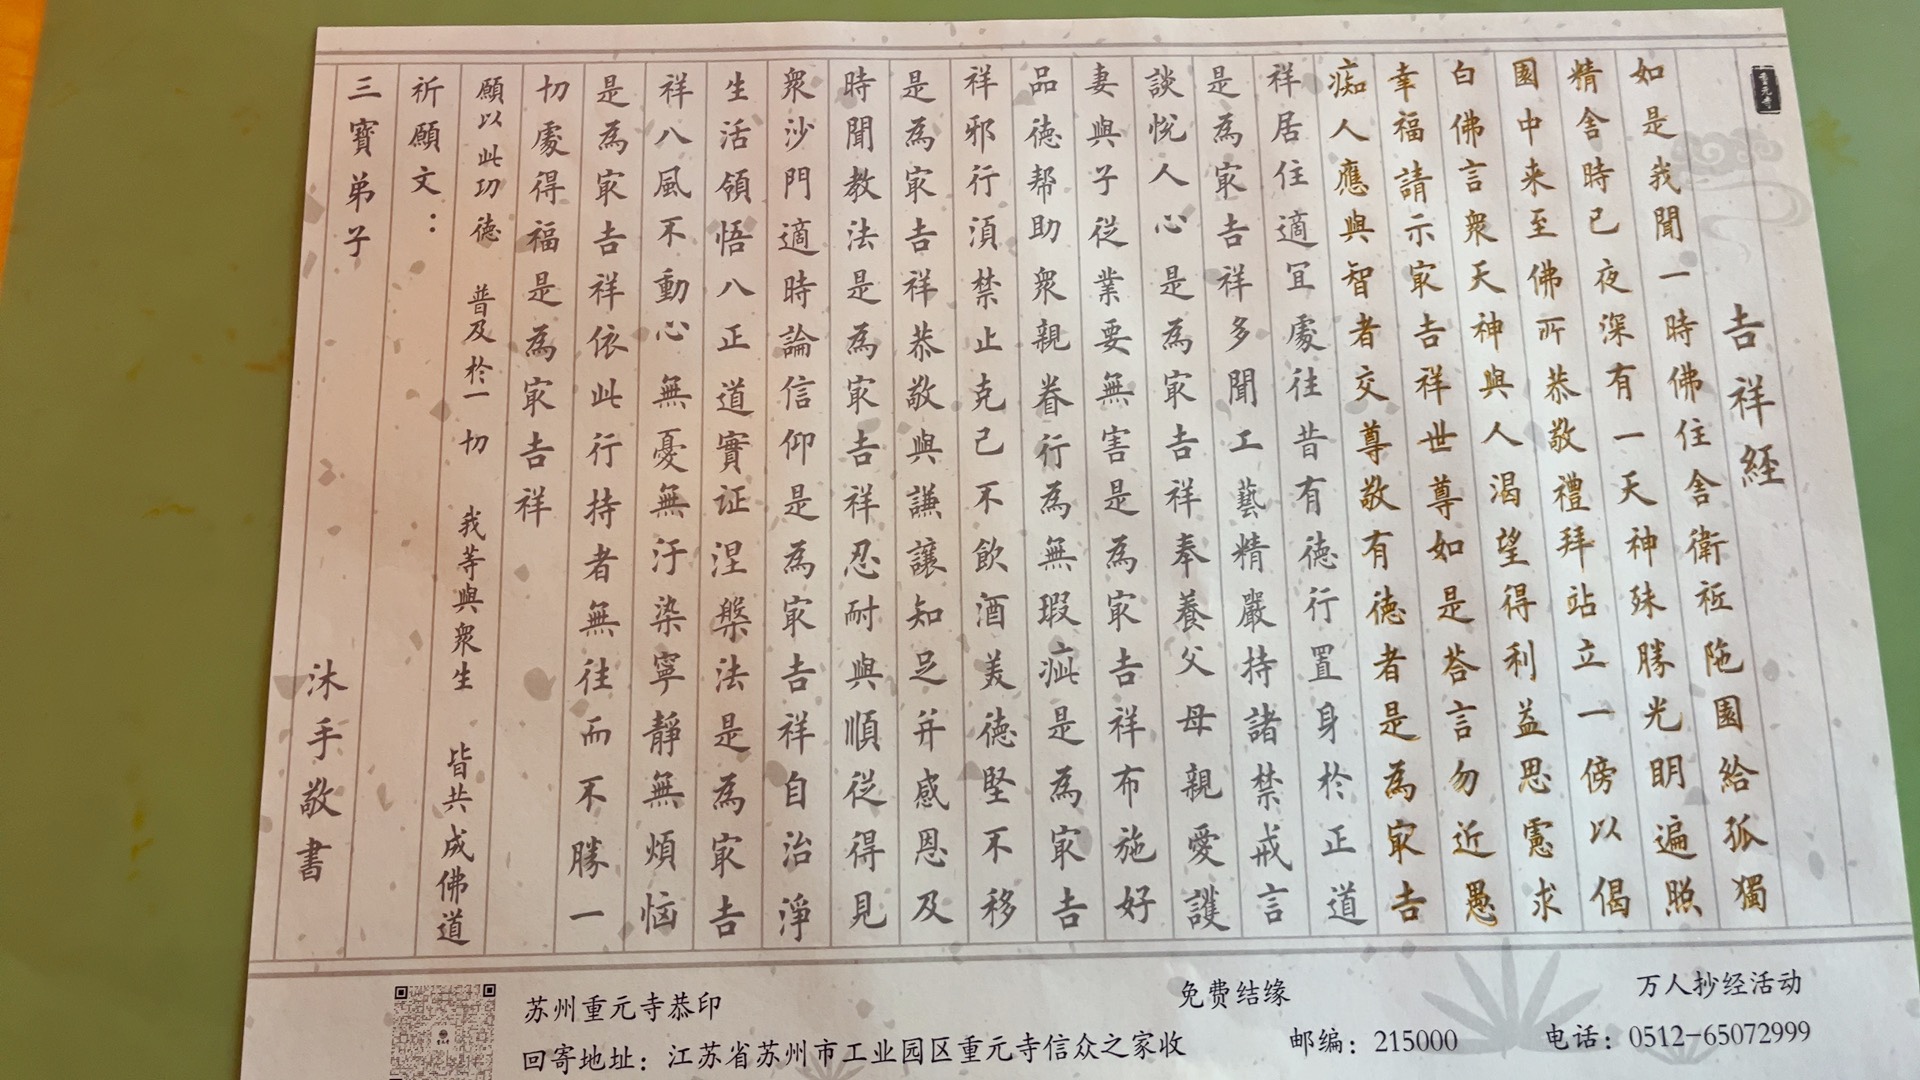 重元寺
吉祥経
如是我聞一時佛住舎衛祗陁園給孤獨
精舎時已夜深有一天神殊勝光明遍照
園中来至佛所恭敬禮拜站立一傍以偈
白佛言衆天神與人渴望得利益思慮求
幸福請示冣吉祥世尊如是荅言勿近愚
痴人應與智者交尊敬有徳者是為冣吉
祥居住適冝處往昔有徳行置身於正道
是為冣吉祥多聞工藝精嚴持諸禁戒言
談悅人心是為冣吉祥奉養父母親愛護
妻與子從業要無害是為冣吉祥布施好
品徳帮助衆親眷行為無瑕疵是為冣吉
祥邪行須禁止克己不飲酒美徳堅不移
是為冣吉祥恭敬與謙讓知足并感恩及
時聞教法是為冣吉祥忍耐與順從得見
衆沙門適時論信仰是為冣吉祥自治淨
生活領悟八正道實证涅槃法是為冣吉
祥八風不動心無憂無汙染寧靜無煩惱
是為冣吉祥依此行持者無往而不勝一
切處得福是為冣吉祥
願以此功徳 普及於一切 我等與衆生 皆共成佛道
祈願文：
三寳弟子 沐手敬書
苏州重元寺恭印 免费结缘 万人抄经活动
回寄地址：江苏省苏州市工业园区重元寺信众之家收 邮编：215000 电话：0512-65072999